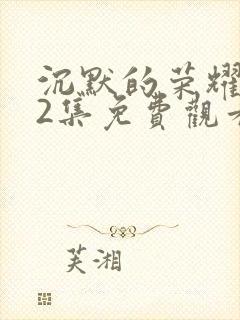 沉默的荣耀
2集免費觀
芙湘